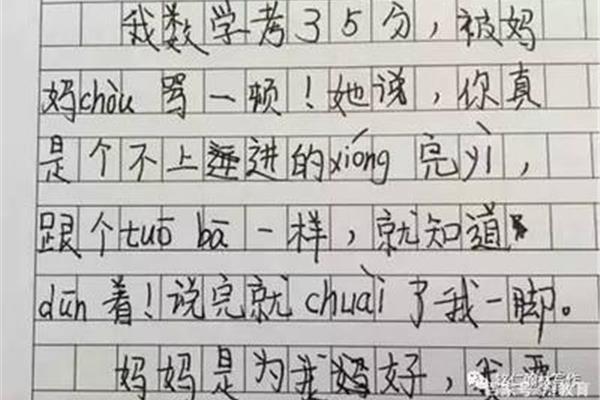 我数学考35分，被妈
妈chòu 骂一顿！她说，你真
是个不上进的xióng 完yì，
跟个tuō bā一样，就知道
dūn着！说完就chuài了我一脚。
妈妈是为我好，我要